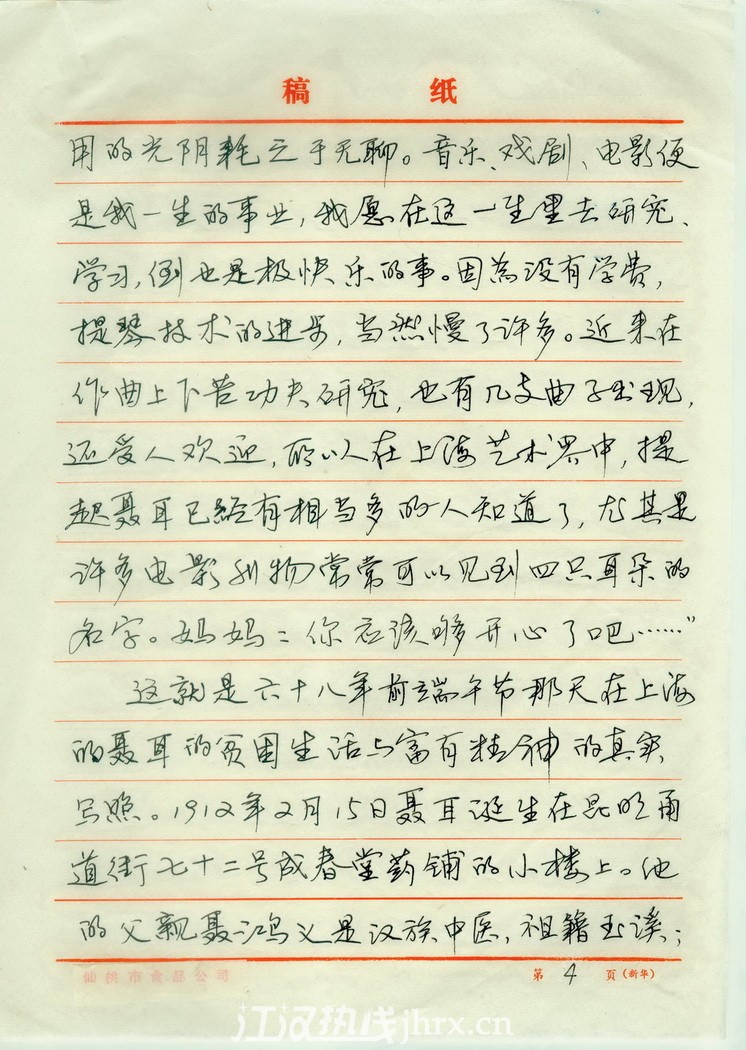 稿 纸
用的光阴耗之于无聊。音乐、戏剧、电影便
是我一生的事业，我愿在这一生里去研究、
学习，倒也是极快乐的事。因为没有学费，
提琴技术的进步，当然慢了许多。近来在
作曲上下苦功夫研究，也有几支曲子出现，
还受人欢迎，所以在上海艺术界中，提
起聂耳已经有相当多的人知道了，尤其是
许多电影刊物常常可以见到四只耳朵的
名字。妈妈：你应该够开心了吧……”
这就是六十八年前端午节那天在上海
的聂耳的贫困生活与富有精神的真实
写照。1912年2月15日聂耳诞生在昆明甬
道街七十二号成春堂药铺的小楼上。他
的父亲聂鸿义是汉族中医，祖籍玉溪；
仙桃市食品公司
第 4 页（新华）
江汉热线jhrx.cn